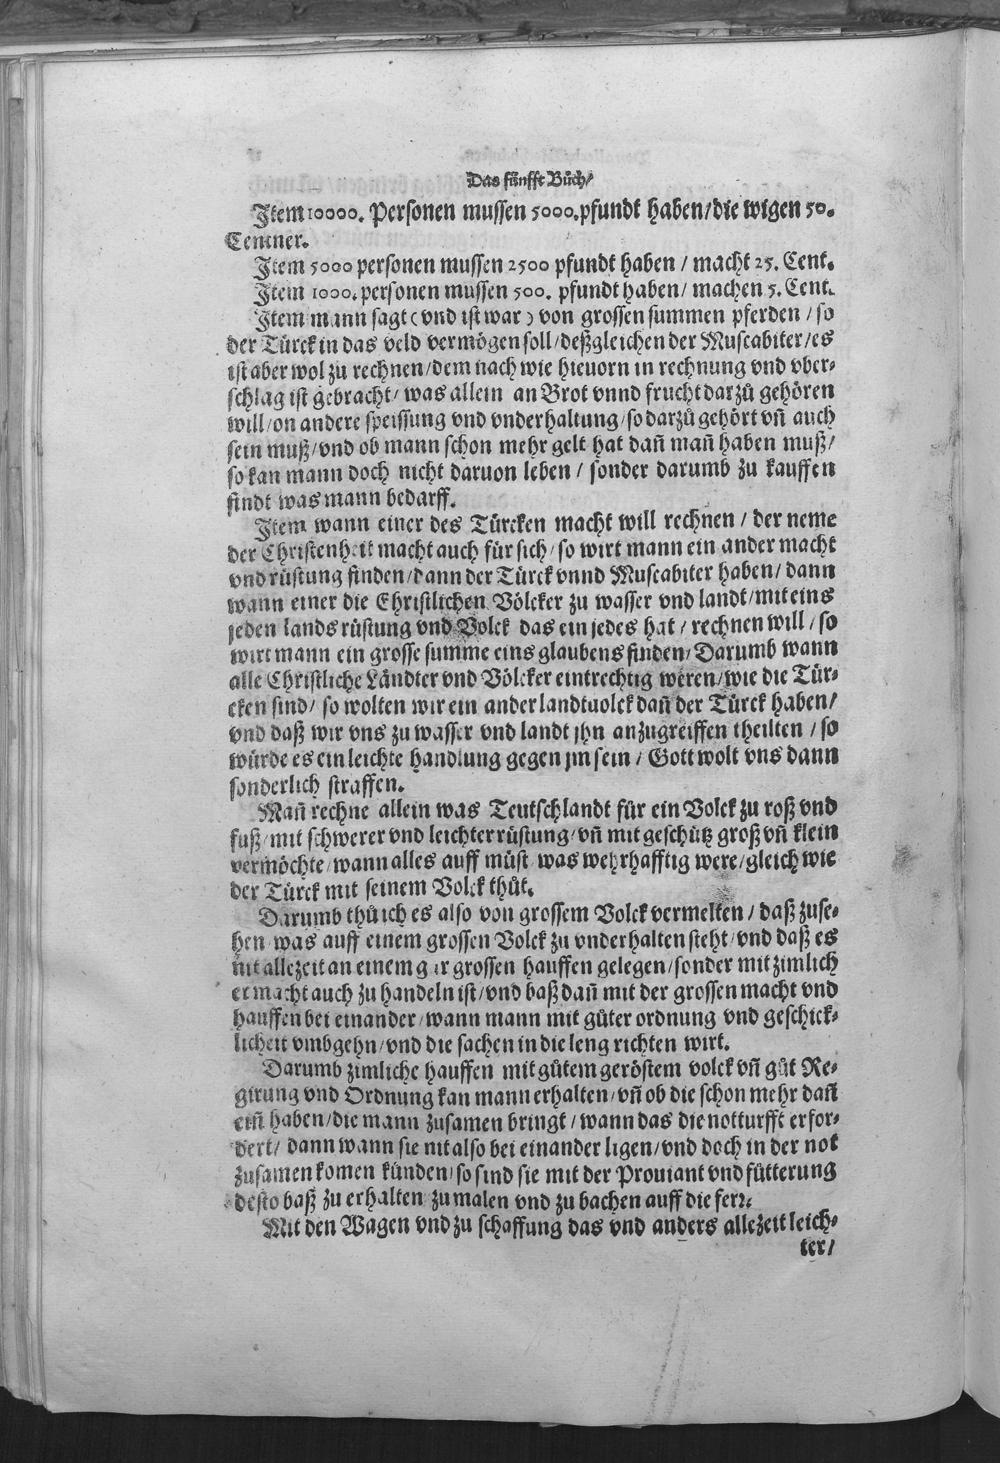 Das fünfft Bůch/
Item 10000. Personen mussen 5000. pfundt haben/ die wigen 50.
Centner.
Item 5000 personen mussen 2500 pfundt haben / macht 25. Cent.
Item 1000. personen mussen 500. pfundt haben/ machen 5. Cent.
Item mann sagt (vnd ist war) von grossen summen pferden / so
der Türck in das veld vermögen soll/ deßgleichen der Muscabiter/ es
ist aber wol zu rechnen/ dem nach wie hieuorn in rechnung vnd vber⸗
schlag ist gebracht/ was allein an Brot vnnd frucht darzů gehören
will/ on andere speissung vnd vnderhaltung/ so darzů gehört vñ auch
sein muß/ vnd ob mann schon mehr gelt hat dañ mañ haben muß/
so kan mann doch nicht daruon leben / sonder darumb zu kauffen
findt was mann bedarff.
Item wann einer des Türcken macht will rechnen / der neme
der Christenheit macht auch für sich/ so wirt mann ein ander macht
vnd rüstung finden/ dann der Türck vnnd Muscabiter haben/ dann
wann einer die Christlichen Völcker zu wasser vnd landt/ mit eins
jeden lands rüstung vnd Volck das ein jedes hat / rechnen will / so
wirt mann ein grosse summe eins glaubens finden/ Darumb wann
alle Christliche Ländter vnd Völcker eintrechtig weren/ wie die Tür⸗
cken sind/ so wolten wir ein ander landtuolck dañ der Türck haben/
vnd daß wir vns zu wasser vnd landt jhn anzugreiffen theilten / so
würde es ein leichte handlung gegen jm sein / Gott wolt vns dann
sonderlich straffen.
Mañ rechne allein was Teutschlandt für ein Volck zu roß vnd
fuß/ mit schwerer vnd leichter rüstung/ vñ mit geschütz groß vñ klein
vermöchte/ wann alles auff müst/ was wehrhafftig were/ gleich wie
der Türck mit seinem Volck thůt.
Darumb thů ich es also von grossem Volck vermelten / daß zuse⸗
hen was auff einem grossen Volck zu vnderhalten steht/ vnd daß es
nit allezeit an einem gar grossen hauffen gelegen/ sonder mit zimlich
er macht auch zu handeln ist/ vnd baß dañ mit der grossen macht vnd
hauffen bei einander/ wann mann mit gůter ordnung vnd geschick⸗
licheit vmbgehn/ vnd die sachen in die leng richten wirt.
Darumb zimliche hauffen mit gůtem geröstem volck vñ gůt Re⸗
girung vnd Ordnung kan mann erhalten/ vñ ob die schon mehr dañ
eiñ haben/ die mann zusamen bringt / wann das die notturfft erfor⸗
dert/ dann wann sie nit also bei einander ligen/ vnd doch in der not
zusamen komen künden/ so sind sie mit der Prouiant vnd fütterung
desto baß zu erhalten zu malen vnd zu bachen auff die ferr.
Mit den Wagen vnd zu schaffung das vnd anders allezeit leich⸗
ter/